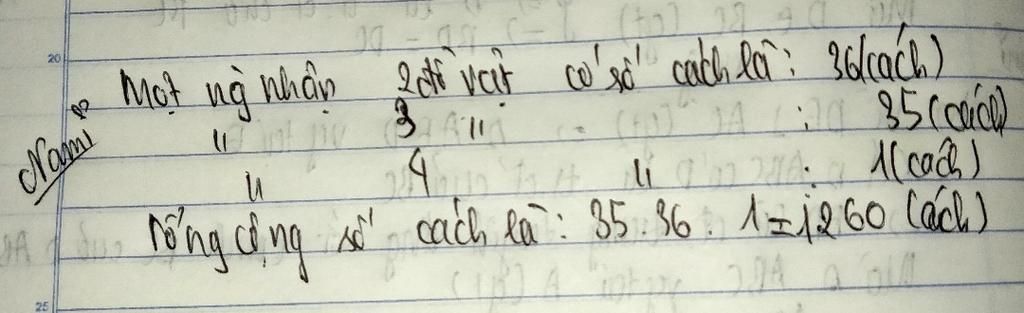 20
Một ng̀ nhận 2 đồ vật có số cách là: 36(cách)
Nam
" 3 " : 35(cách)
" 4 " : 1(cách)
Tổng cộng số cách là: 35.36.1=1260 (cách)
25